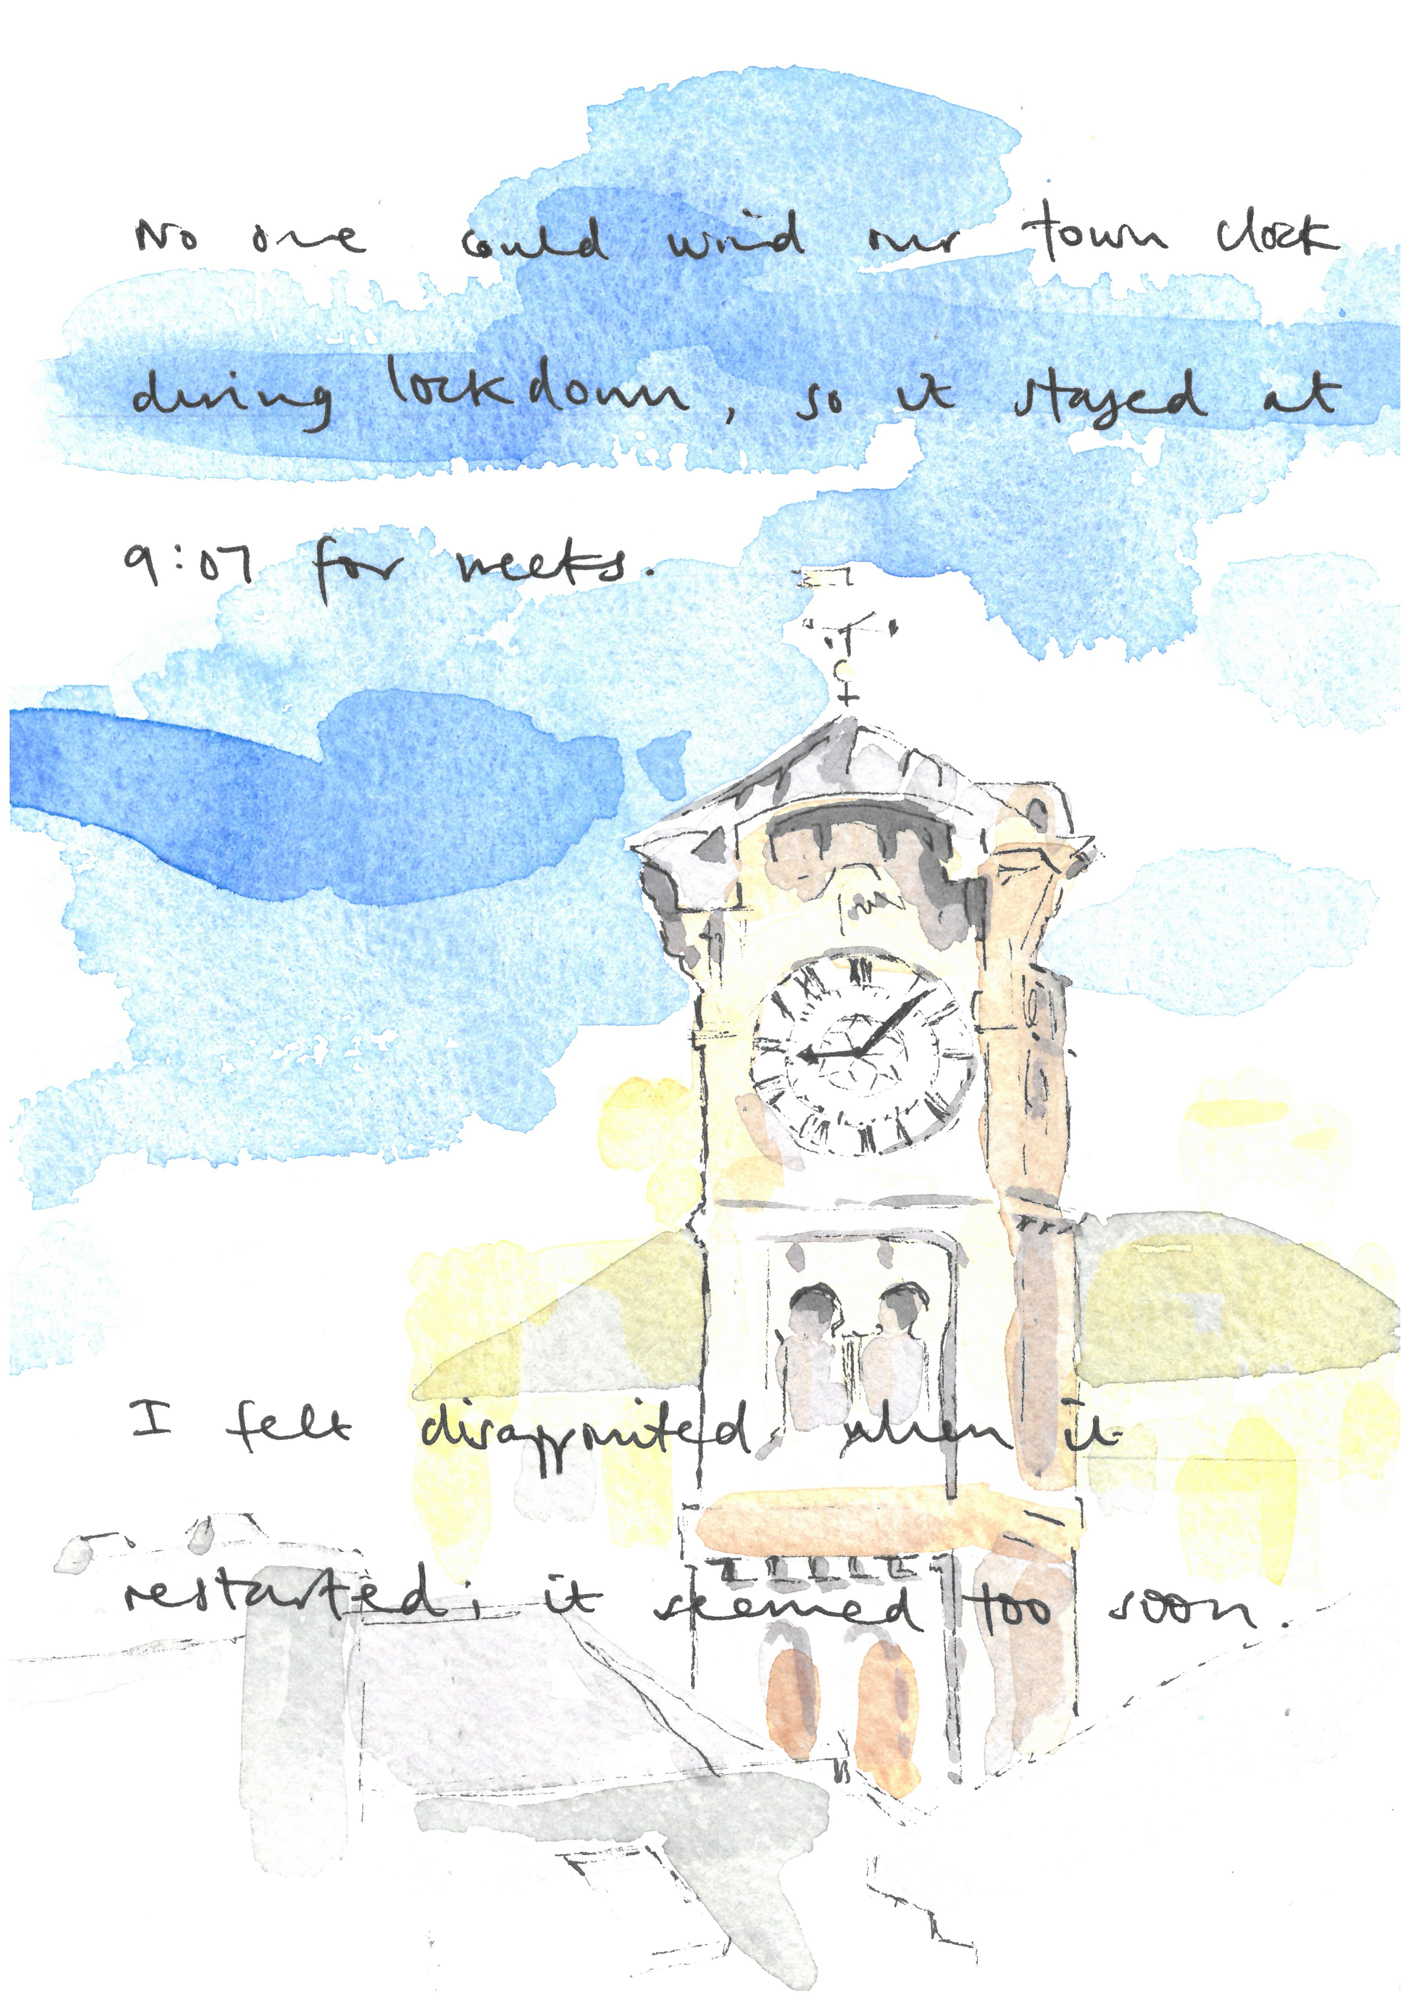 No one could wind our town clock
during lockdown, so it stayed at
9:07 for weeks.
I felt disappointed when it
restarted; it seemed too soon.